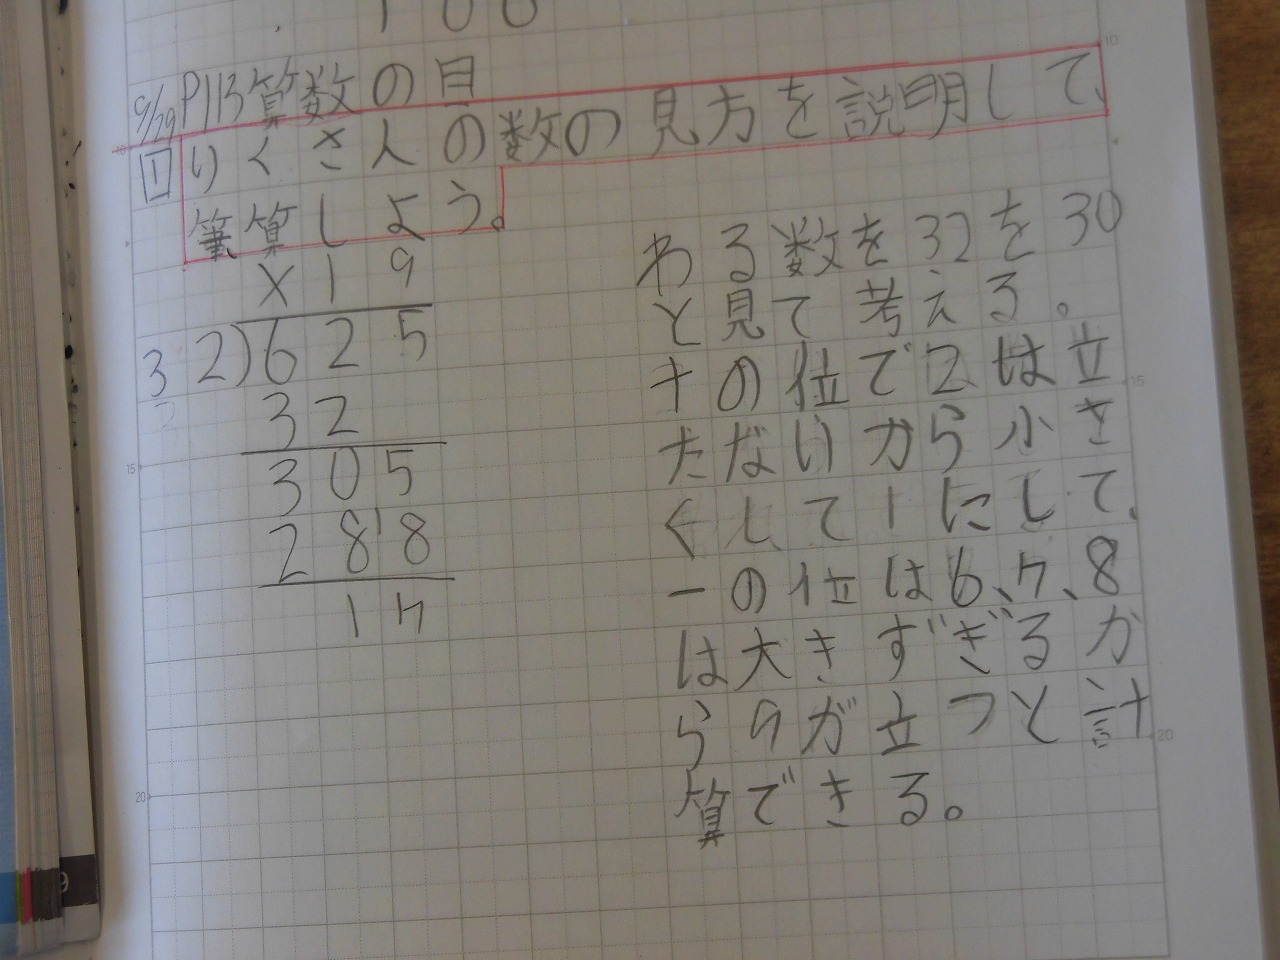 100
9/29 P113 算数の目
1 りくさんの数の見方を説明して、
筆算しよう。
×19
32)625
32
305
288
17
わる数を32を30
と見て考える。
十の位で2は立
たないから小さ
くして1にして、
一の位は6、7、8
は大きすぎるか
ら9が立つと計
算できる。
10
15
20
15
20
9